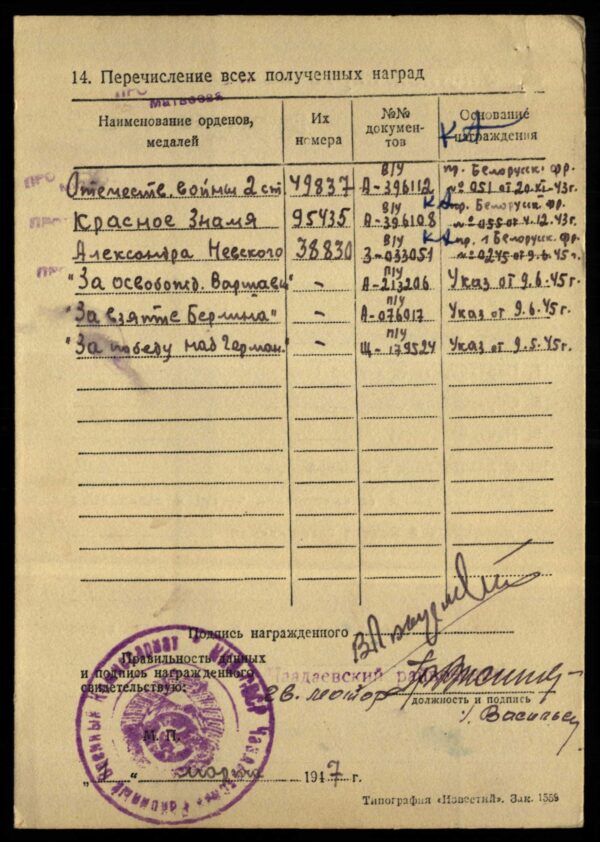 14. Перечисление всех полученных наград
ПРО
Матвеева
Наименование орденов, медалей
Их номера
№№ документов
Основание награждения
КА
Отечеств. войны 2 ст 49837 в/у А-396112 пр. Белорусск. фр. №051 от 20.XI-43г.
Красное Знамя 95435 в/у А-396108 КА пр. Белорусск. фр. №055 от 4.12.43г.
Александра Невского 38830 в/у З-033051 КА пр. 1 Белорусск. фр. №0245 от 9.6.45г.
"За освобожд. Варшавы" - п/у А-213206 Указ от 9.6.45г.
"За взятие Берлина" - п/у А-076017 Указ от 9.6.45г.
"За победу над Герман." - п/у Щ-179524 Указ от 9.5.45г.
Подпись награжденного
Правильность данных
и подпись награжденного
свидетельствую:
Чаадаевский рай
должность и подпись
/. Васильев
М. П.
" " марта 1947 г.
Типография «Известий». Зак. 1559